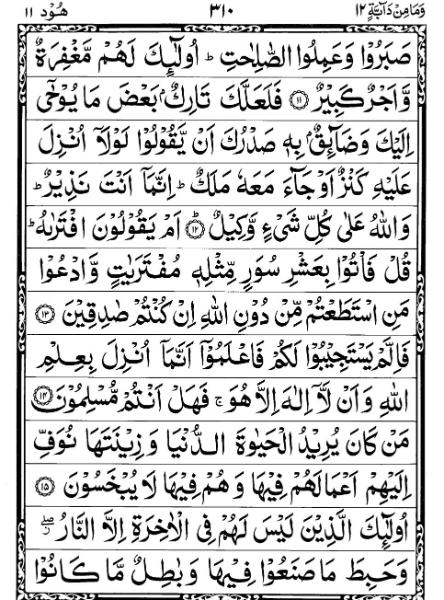 وَمَا مِنْ دَآبَّةٍ ١٢ ٣١٠ هُوْد ١١
صَبَرُوْا وَعَمِلُوا الصّٰلِحٰتِ ؕ اُولٰٓئِكَ لَهُمْ مَّغْفِرَةٌ
وَّاَجْرٌ كَبِيْرٌ ﴿۱۱﴾ فَلَعَلَّكَ تَارِكٌۢ بَعْضَ مَا يُوْحٰٓى
اِلَيْكَ وَضَآئِقٌۢ بِهٖ صَدْرُكَ اَنْ يَّقُوْلُوْا لَوْلَاۤ اُنْزِلَ
عَلَيْهِ كَنْزٌ اَوْ جَآءَ مَعَهٗ مَلَكٌ ؕ اِنَّمَاۤ اَنْتَ نَذِيْرٌ ؕ
وَاللّٰهُ عَلٰى كُلِّ شَىْءٍ وَّكِيْلٌ ؕ﴿۱۲﴾ اَمْ يَقُوْلُوْنَ افْتَرٰىهُ ؕ
قُلْ فَاْتُوْا بِعَشْرِ سُوَرٍ مِّثْلِهٖ مُفْتَرَيٰتٍ وَّادْعُوْا
مَنِ اسْتَطَعْتُمْ مِّنْ دُوْنِ اللّٰهِ اِنْ كُنْتُمْ صٰدِقِيْنَ ﴿۱۳﴾
فَاِلَّمْ يَسْتَجِيْبُوْا لَكُمْ فَاعْلَمُوْۤا اَنَّمَاۤ اُنْزِلَ بِعِلْمِ
اللّٰهِ وَاَنْ لَّاۤ اِلٰهَ اِلَّا هُوَ ۚ فَهَلْ اَنْتُمْ مُّسْلِمُوْنَ ﴿۱۴﴾
مَنْ كَانَ يُرِيْدُ الْحَيٰوةَ الدُّنْيَا وَزِيْنَتَهَا نُوَفِّ
اِلَيْهِمْ اَعْمَالَهُمْ فِيْهَا وَهُمْ فِيْهَا لَا يُبْخَسُوْنَ ﴿۱۵﴾
اُولٰٓئِكَ الَّذِيْنَ لَيْسَ لَهُمْ فِى الْاٰخِرَةِ اِلَّا النَّارُ ۖ
وَحَبِطَ مَا صَنَعُوْا فِيْهَا وَبٰطِلٌ مَّا كَانُوْا